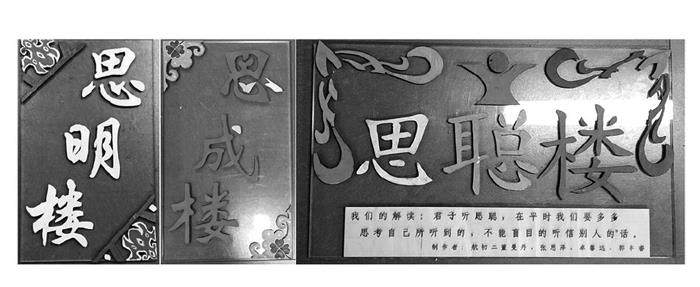 思
明
楼
思
成
楼
思聪楼
我们的解读：君子听思聪；在平时我们要多多
思考自己所听到的，不能盲目的听信别人的话。
制作者：航初二董曼丹，张思萍，卓馨远，郭丰睿